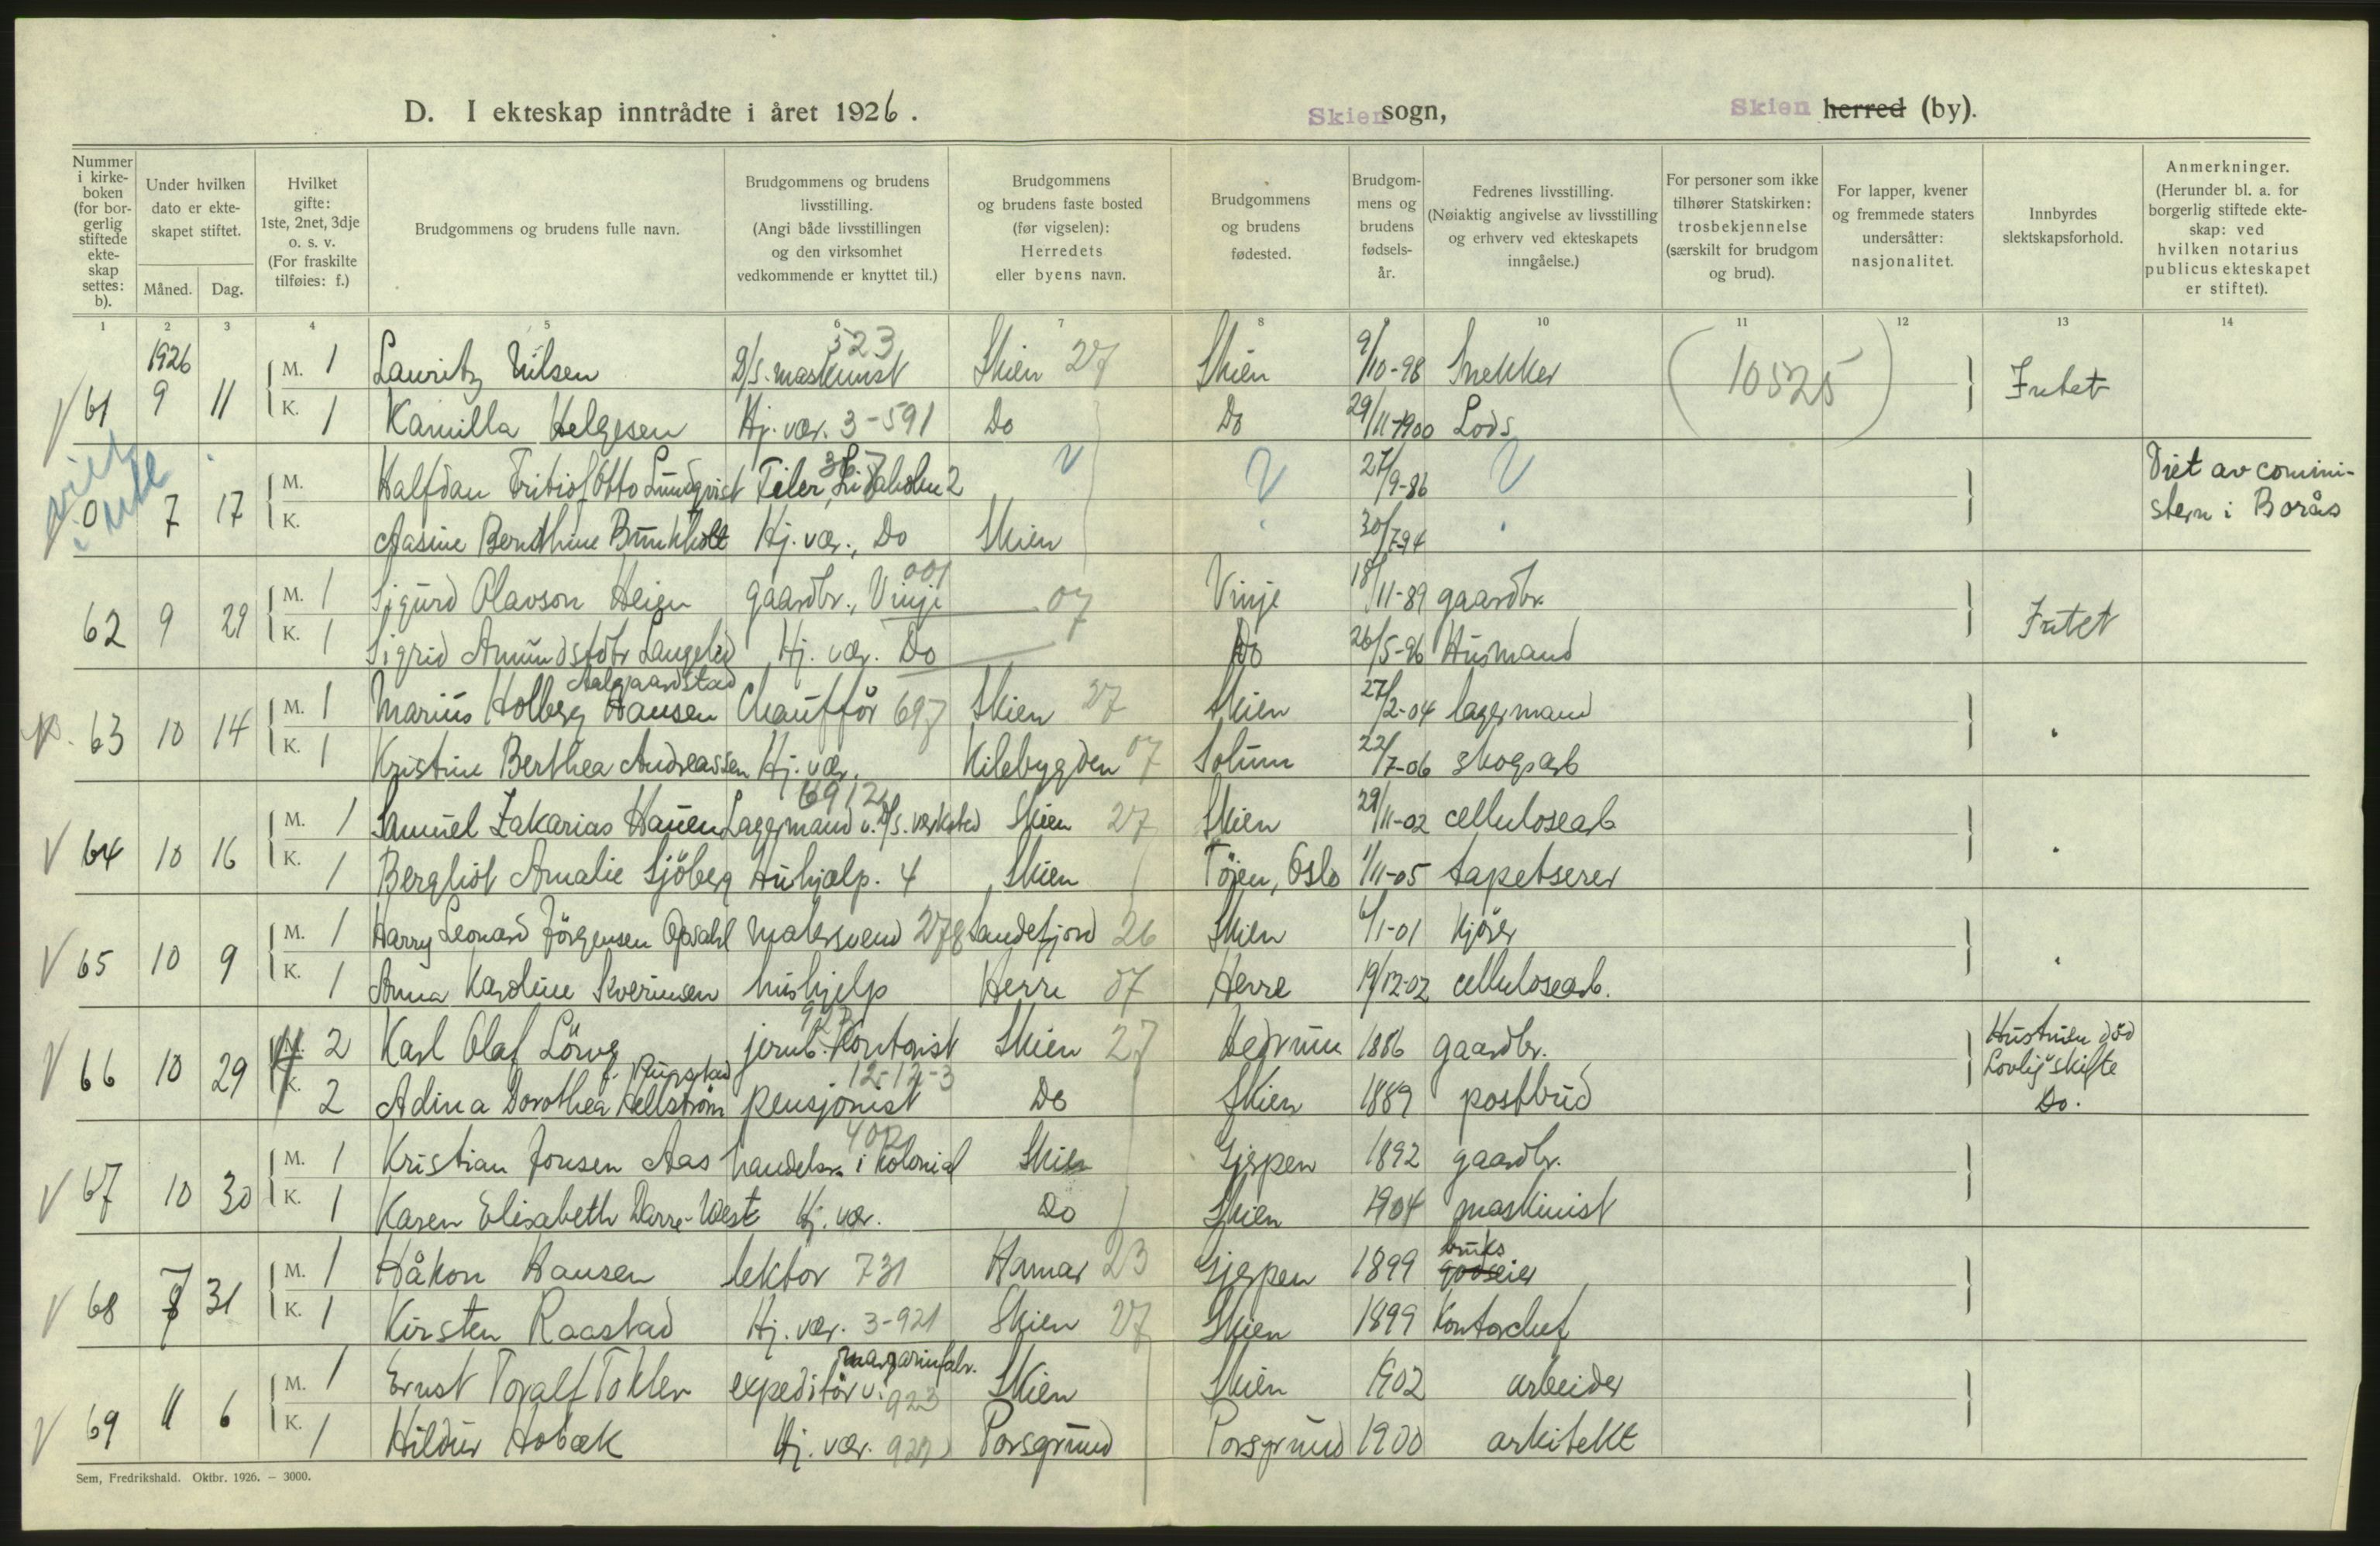 D. I ekteskap inntrådte i året 1926.
Skien sogn,
Skien herred (by).
Nummer i kirkeboken (for borgerlig stiftede ekteskap settes: b).
Under hvilken dato er ekteskapet stiftet.
Måned. Dag.
Hvilket gifte: 1ste, 2net, 3dje o. s. v. (For fraskilte tilføies: f.)
Brudgommens og brudens fulle navn.
Brudgommens og brudens livsstilling. (Angi både livsstillingen og den virksomhet vedkommende er knyttet til.)
Brudgommens og brudens faste bosted (før vigselen): Herredets eller byens navn.
Brudgommens og brudens fødested.
Brudgommens og brudens fødselsår.
Fedrenes livsstilling. (Nøiaktig angivelse av livsstilling og erhverv ved ekteskapets inngåelse.)
For personer som ikke tilhører Statskirken: trosbekjennelse (særskilt for brudgom og brud).
For lapper, kvener og fremmede staters undersåtter: nasjonalitet.
Innbyrdes slektskapsforhold.
Anmerkninger. (Herunder bl. a. for borgerlig stiftede ekteskap: ved hvilken notarius publicus ekteskapet er stiftet).
1 2 3 4 5 6 7 8 9 10 11 12 13 14
1926 323
M. 1 Lauritz Nilsen D/S. maskinist Skien 27 Skien 9/10-98 Snekker (10525) Intet
V 61 9 11
K. 1 Kamilla Helgesen Hj. vær. 3-591 Do Do 29/11-1900 Lods
M. Halfdan Fritiof Otto Lundqvist Feler, V V 27/9-86 V Viet av comini-
0 7 17 stern i Borås
K. Aasine Berndhine Bunkholt Hj. vær., Do Skien 30/7-94
M. 1 Sigurd Olavson Heigen gaardbr., Vinje 001 07 Vinje 18/11-89 gaardbr.
62 9 29 Intet
K. 1 Sigrid Amundsdtr Langelid Hj. vær. Do Do 26/5-96 Husmand
Aalgaardstad
M. 1 Marius Holberg Hansen Chaufför 697 Skien 27 Skien 27/2-04 lagermand
63 10 14
K. 1 Kristine Berthea Andreassen Hj. vær. Kilebygden 07 Solum 22/7-06 skogsarb
6912
M. 1 Samuel Zakarias Hauen Lagermand v. D/S. verksted Skien 27 Skien 29/11-02 cellulosearb
V 64 10 16
K. 1 Bergliot Amalie Sjöberg Huhjælp. 4 Skien Töien, Oslo 1/11-05 tapetserer
M. 1 Harry Leonard Jörgensen Opsahl Malersvend 278 Sandefjord 26 Skien 6/1-01 Kjörer
V 65 10 9
K. 1 Anna Karoline Sverinsen hushjelp Herre 07 Herre 19/12-02 cellulosearb.
993
M. 2 Karl Olaf Lörve jernb. Kontorist Skien 27 Hedrum 1886 gaardbr. Hustruen död
V 66 10 29 Lovlig skifte
f. Rugstad 12-12-3
K. 2 Adina Dorothea Hellström pensjonist Do Skien 1889 postbud Do.
402
M. 1 Kristian Jonsen Aas handelsm. i Kolonial Skien Gjerpen 1892 gaardbr.
V 67 10 30
K. 1 Karen Elisabeth Darre-West Hj. vær. Do Skien 1904 maskinist
M. 1 Håkon Hansen lektor 731 Hamar 23 Gjerpen 1899 bruks godseier
V 68 7 31
K. 1 Kirsten Raastad Hj. vær. 3-921 Skien 27 Skien 1899 Kontorchef
margarinfabr.
M. 1 Ernst Toralf Tollen expeditör v. 923 Skien Skien 1902 arbeider
V 69 11 6
K. 1 Hildur Hobæk Hj. vær. Porsgrund Porsgrund 1900 arkitekt
Sem, Fredrikshald. Oktbr. 1926. – 3000.